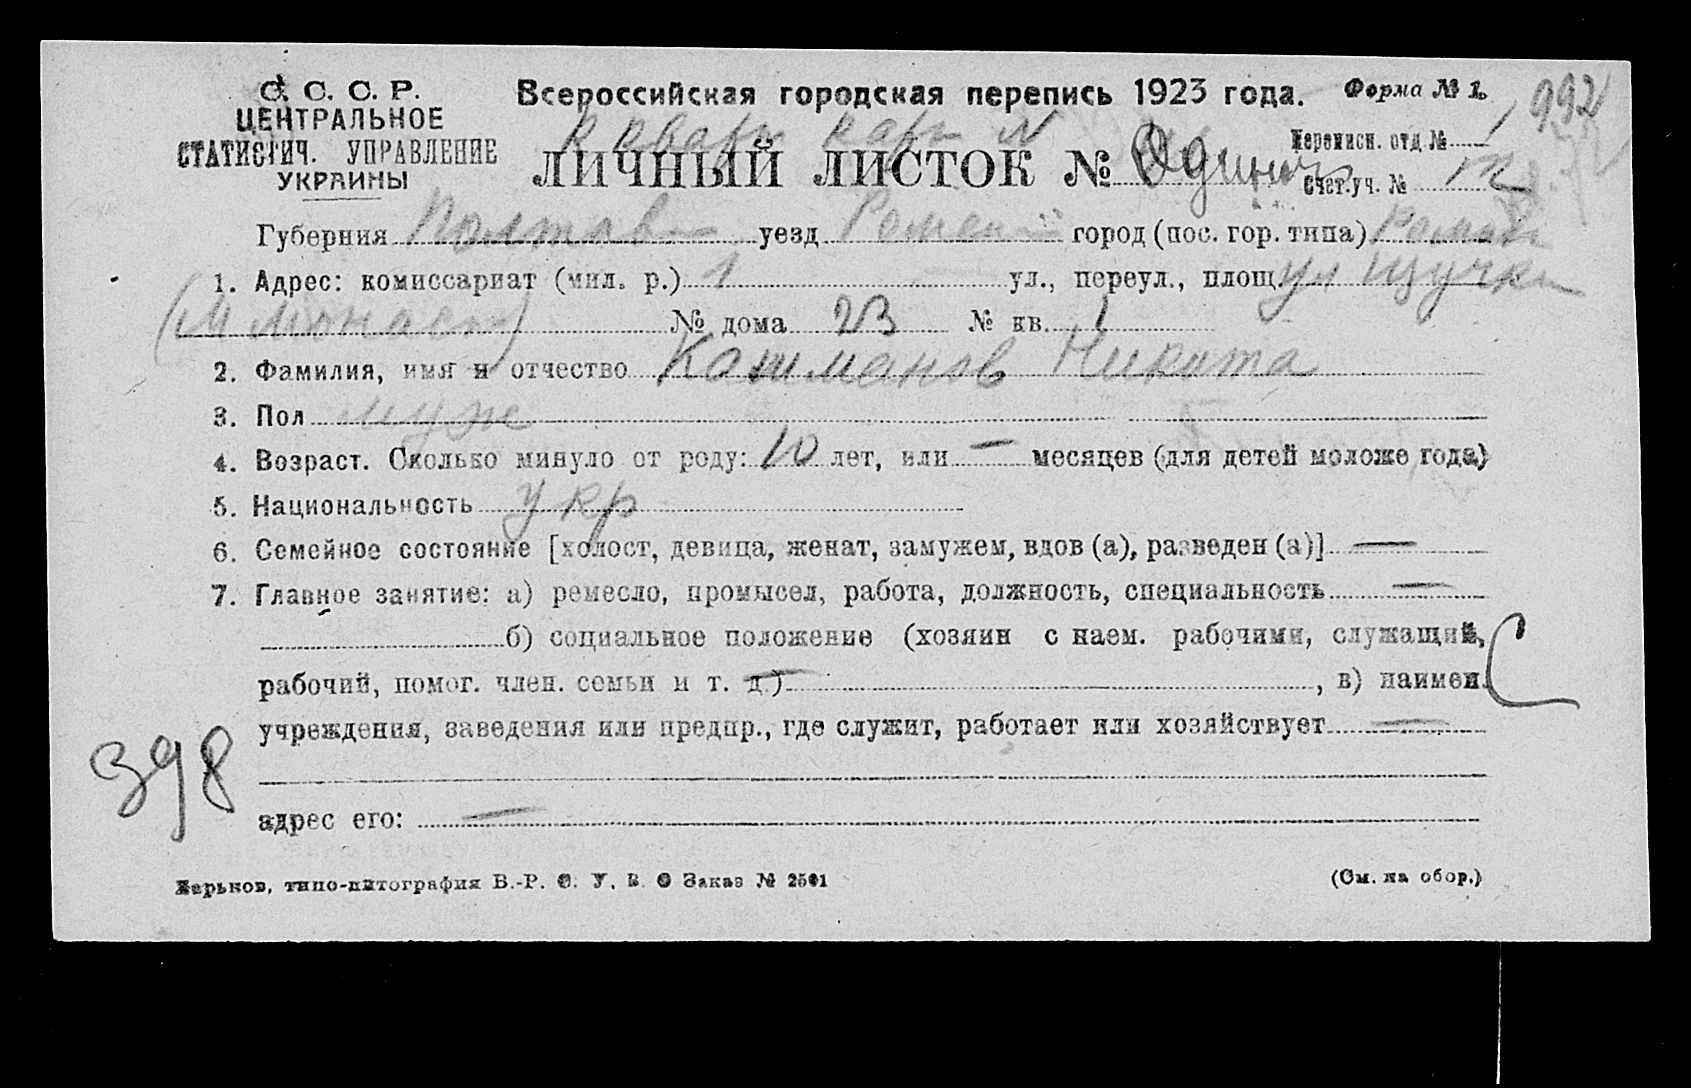 С. С. С. Р.
ЦЕНТРАЛЬНОЕ
СТАТИСТИЧ. УПРАВЛЕНИЕ
УКРАИНЫ
Всероссийская городская перепись 1923 года.
Форма № 1.
992
К кварт карт N
ЛИЧНЫЙ ЛИСТОК №
Переписн. отд. № 1
Счет. уч. № 12
Губерния Полтав уезд Ромен город (пос. гор. типа) Ромен
1. Адрес: комиссариат (мил. р.) 1 ул., переул., площ. ул Щучки
(М Монаст) № дома 23 № кв. 1
2. Фамилия, имя и отчество Котманов Никита
3. Пол муж
4. Возраст. Сколько минуло от роду: 10 лет, или — месяцев (для детей моложе года)
5. Национальность укр
6. Семейное состояние [холост, девица, женат, замужем, вдов (а), разведен (а)] —
7. Главное занятие: а) ремесло, промысел, работа, должность, специальность —
б) социальное положение (хозяин с наем. рабочими, служащий,
рабочий, помог. член. семьи и т. д.) — , в) наимен.
учреждения, заведения или предпр., где служит, работает или хозяйствует —
398
адрес его: —
Харьков, типо-литография В.-Р. С. У. В. О Заказ № 2501
(См. на обор.)